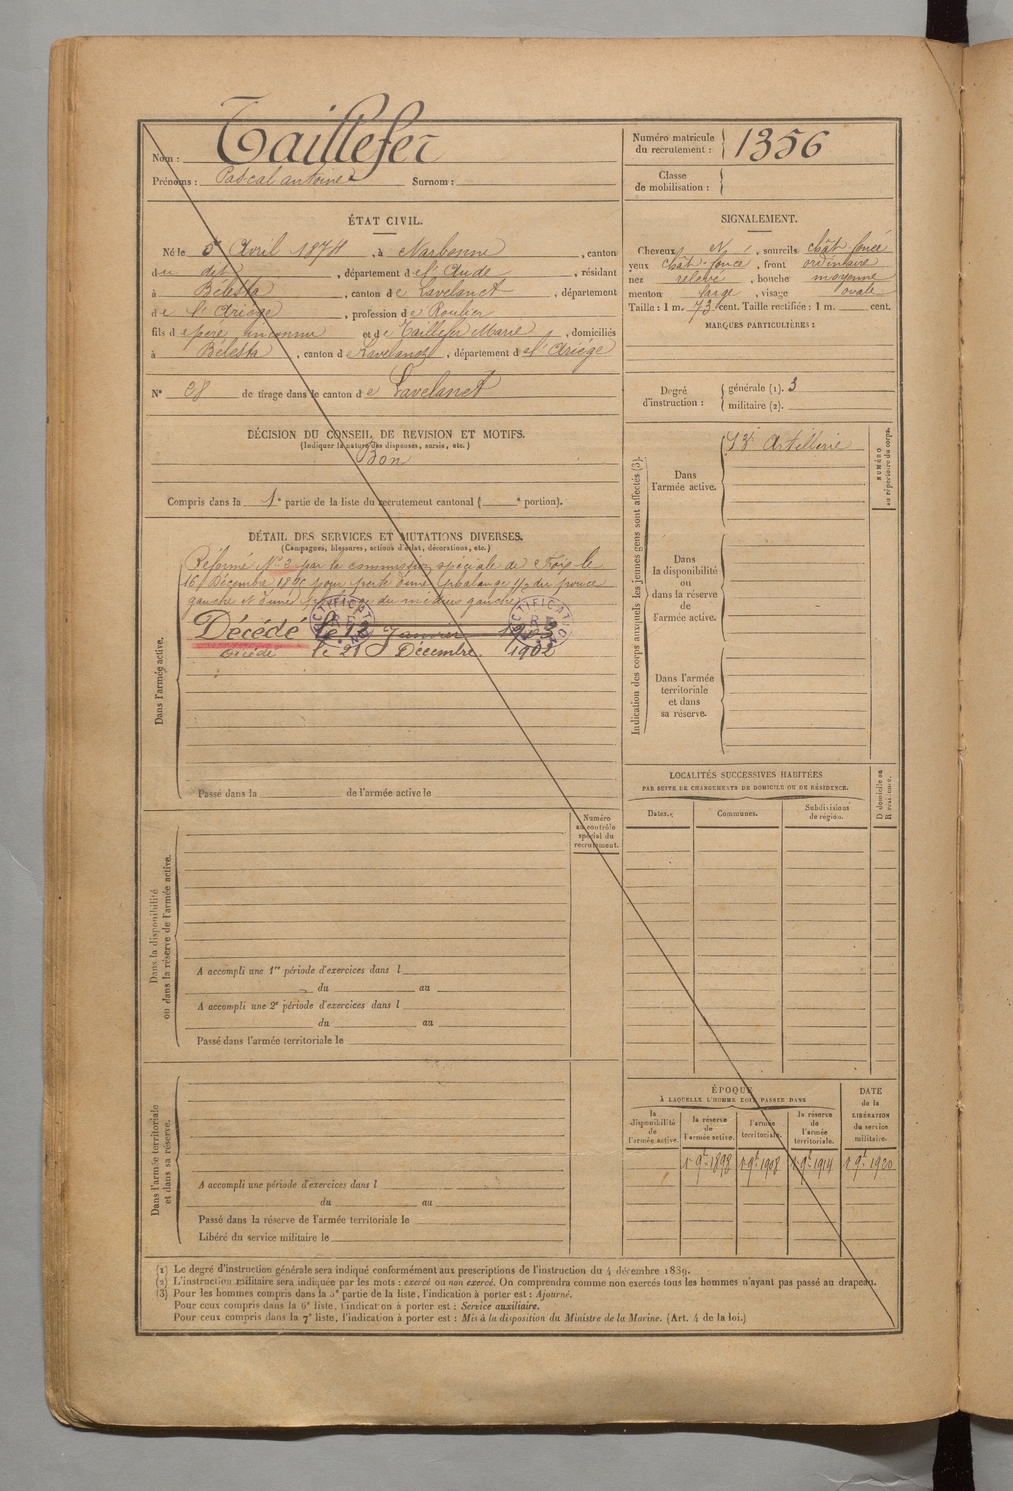 Nom : Taillefer
Prénoms : Pascal antoine Surnom :
Numéro matricule du recrutement : 1356
Classe de mobilisation :
ÉTAT CIVIL.
Né le 5 Avril 1874, à Narbonne, canton
du dit, département de l'Aude, résidant
à Bélesta, canton de Lavelanet, département
de l'Ariège, profession de Roulier
fils de père inconnu et de Taillefer Marie, domiciliés
à Bélesta, canton de Lavelanet, département de l'Ariége
N° 28 de tirage dans le canton de Lavelanet
SIGNALEMENT.
Cheveux, sourcils chât. foncé
yeux chât. foncé, front ordinaire
nez relevé, bouche moyenne
menton large, visage ovale
Taille : 1 m. 73 cent. Taille rectifiée : 1 m. cent.
MARQUES PARTICULIÈRES :
Degré d'instruction : générale (1). 3
militaire (2).
DÉCISION DU CONSEIL DE REVISION ET MOTIFS.
(Indiquer la nature des dispenses, sursis, etc.)
Bon
Compris dans la 1e partie de la liste du recrutement cantonal ( e portion).
DÉTAIL DES SERVICES ET MUTATIONS DIVERSES.
(Campagnes, blessures, actions d'éclat, décorations, etc.)
Dans l'armée active.
Réformé N° 2 par la commission spéciale de Foix le
16 Décembre pour perte d'une phalange 1/2 du pouce
gauche et d'une phalange du médius gauche
Décédé le 13 Janvier 1903
Décédé le 21 Décembre. 1902
RECTIFICATION
R.F.
RECTIFICATION
R.F.
Passé dans la de l'armée active le
Indication des corps auxquels les jeunes gens sont affectés (3).
NUMÉRO au répertoire du corps.
Dans l'armée active.
13e Artillerie
Dans la disponibilité ou dans la réserve de l'armée active.
Dans l'armée territoriale et dans sa réserve.
LOCALITÉS SUCCESSIVES HABITÉES
PAR SUITE DE CHANGEMENTS DE DOMICILE OU DE RÉSIDENCE.
D domicile ou R résidence.
Dates. Communes. Subdivisions de région.
Dans la disponibilité ou dans la réserve de l'armée active.
Numéro au contrôle spécial du recrutement.
A accompli une 1re période d'exercices dans l
du au
A accompli une 2e période d'exercices dans l
du au
Passé dans l'armée territoriale le
Dans l'armée territoriale et dans sa réserve.
A accompli une période d'exercices dans l
du au
Passé dans la réserve de l'armée territoriale le
Libéré du service militaire le
ÉPOQUE
À LAQUELLE L'HOMME DOIT PASSER DANS
la disponibilité de l'armée active.
la réserve de l'armée active.
l'armée territoriale.
la réserve de l'armée territoriale.
DATE de la LIBÉRATION du service militaire.
1r 9t 1898 1r 9t 1908 1r 9t 1914 1r 9t 1920
(1) Le degré d'instruction générale sera indiqué conformément aux prescriptions de l'instruction du 4 décembre 1889.
(2) L'instruction militaire sera indiquée par les mots : exercé ou non exercé. On comprendra comme non exercés tous les hommes n'ayant pas passé au drapeau.
(3) Pour les hommes compris dans la 5e partie de la liste, l'indication à porter est : Ajourné.
Pour ceux compris dans la 6e liste, l'indication à porter est : Service auxiliaire.
Pour ceux compris dans la 7e liste, l'indication à porter est : Mis à la disposition du Ministre de la Marine. (Art. 4 de la loi.)